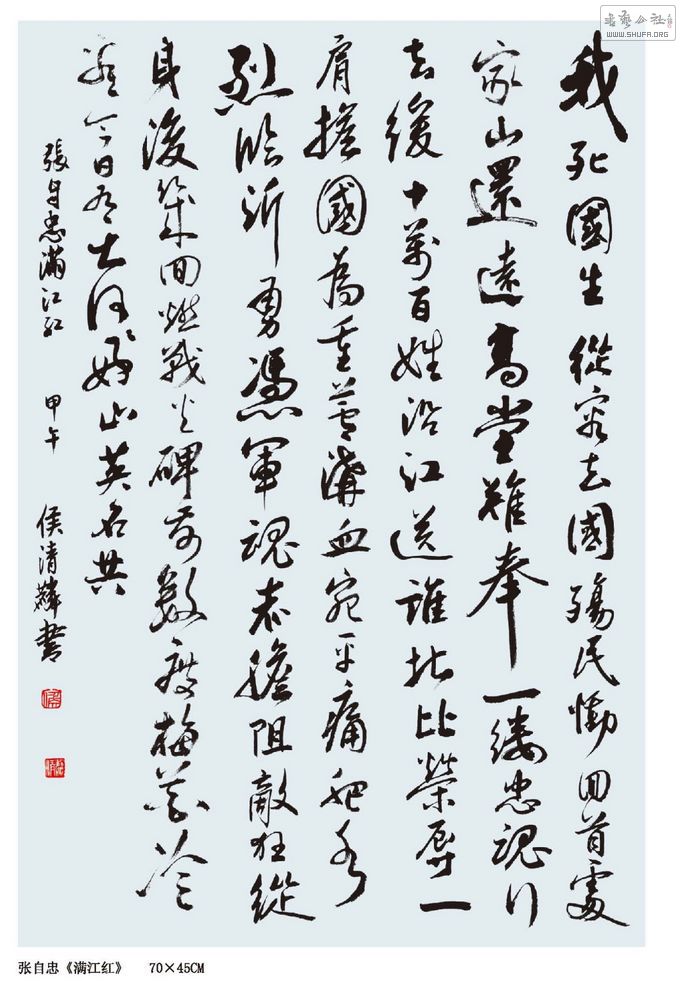 我死國生從容去國殤民慟回首處
家山還遠高堂難奉一縷忠魂行
去後十萬百姓沿江送誰堪比榮辱一
肩擔國為重蘆溝血宛平痛肥水
烈臨沂勇憑軍魂赤膽阻敵狂縱
身後幾回燃戰火碑前數度梅花冷
今日有大河好山英名共
張自忠滿江紅 甲午 侯清麟書
書藝公社
WWW.SHUFA.ORG
张自忠《满江红》 70×45CM